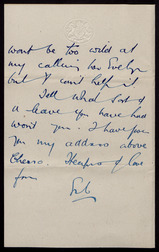 wont be too wild at
my calling her Evelyn
but I can't help it
Tell what sort of
a leave you have had
won't you. I have given
you my address above
Cheerio. Heaps of love
from